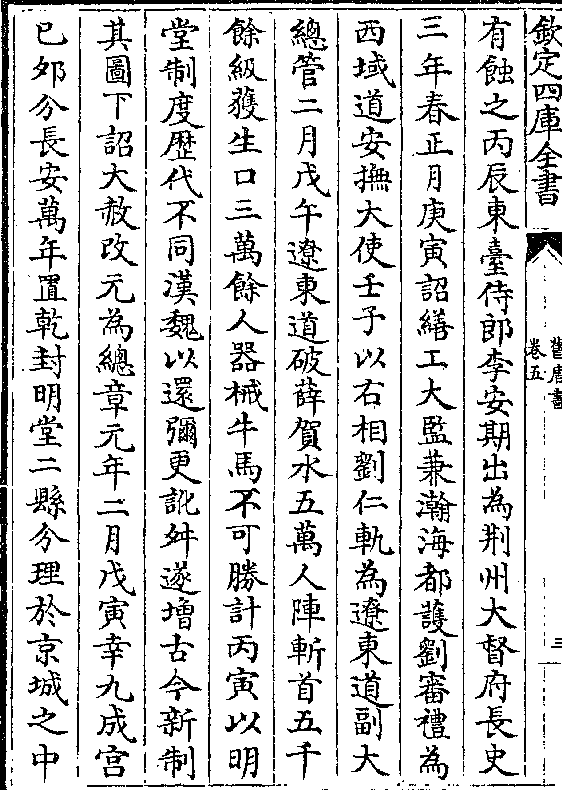 欽定四庫全書
舊唐書
卷五
三
有蝕之丙辰東臺侍郎李安期出為荆州大督府長史
三年春正月庚寅詔繕工大監兼瀚海都護劉審禮為
西域道安撫大使壬子以右相劉仁軌為遼東道副大
總管二月戊午遼東道破薛賀水五萬人陣斬首五千
餘級獲生口三萬餘人器械牛馬不可勝計丙寅以明
堂制度歴代不同漢魏以還彌更訛舛遂増古今新制
其圖下詔大赦改元為總章元年二月戊寅幸九成宫
已夘分長安萬年置乾封明堂二縣分理於京城之中